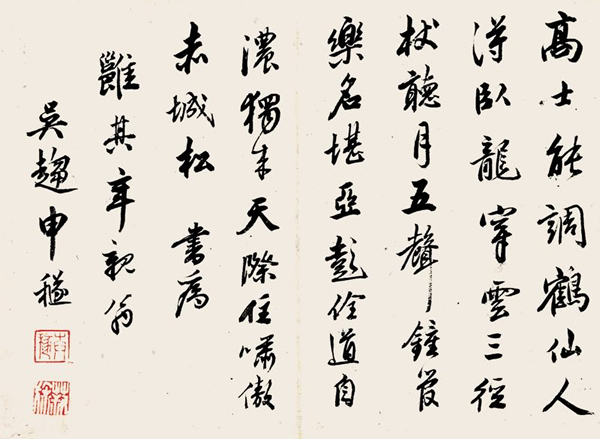 高士能調鶴仙人
淂臥龍穿雲三徑
杖聽月五聲鐘管
樂名堪亞彭佺道自
濃獨來天際住嘯傲
赤城松 書為
雝其年親翁
吳趨申穟